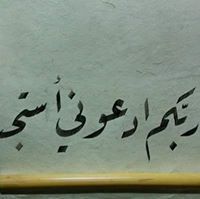 ربّكم ادعوني أستجـ